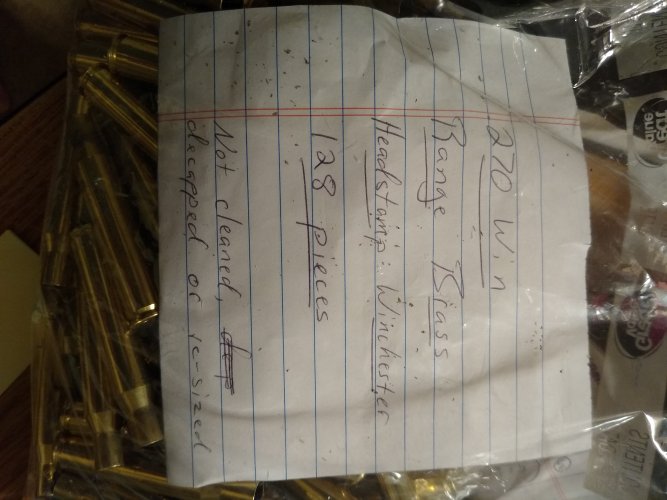 270 Win
Range Brass
Headstamp: Winchester
128 pieces
Not cleaned,
decapped or re-sized